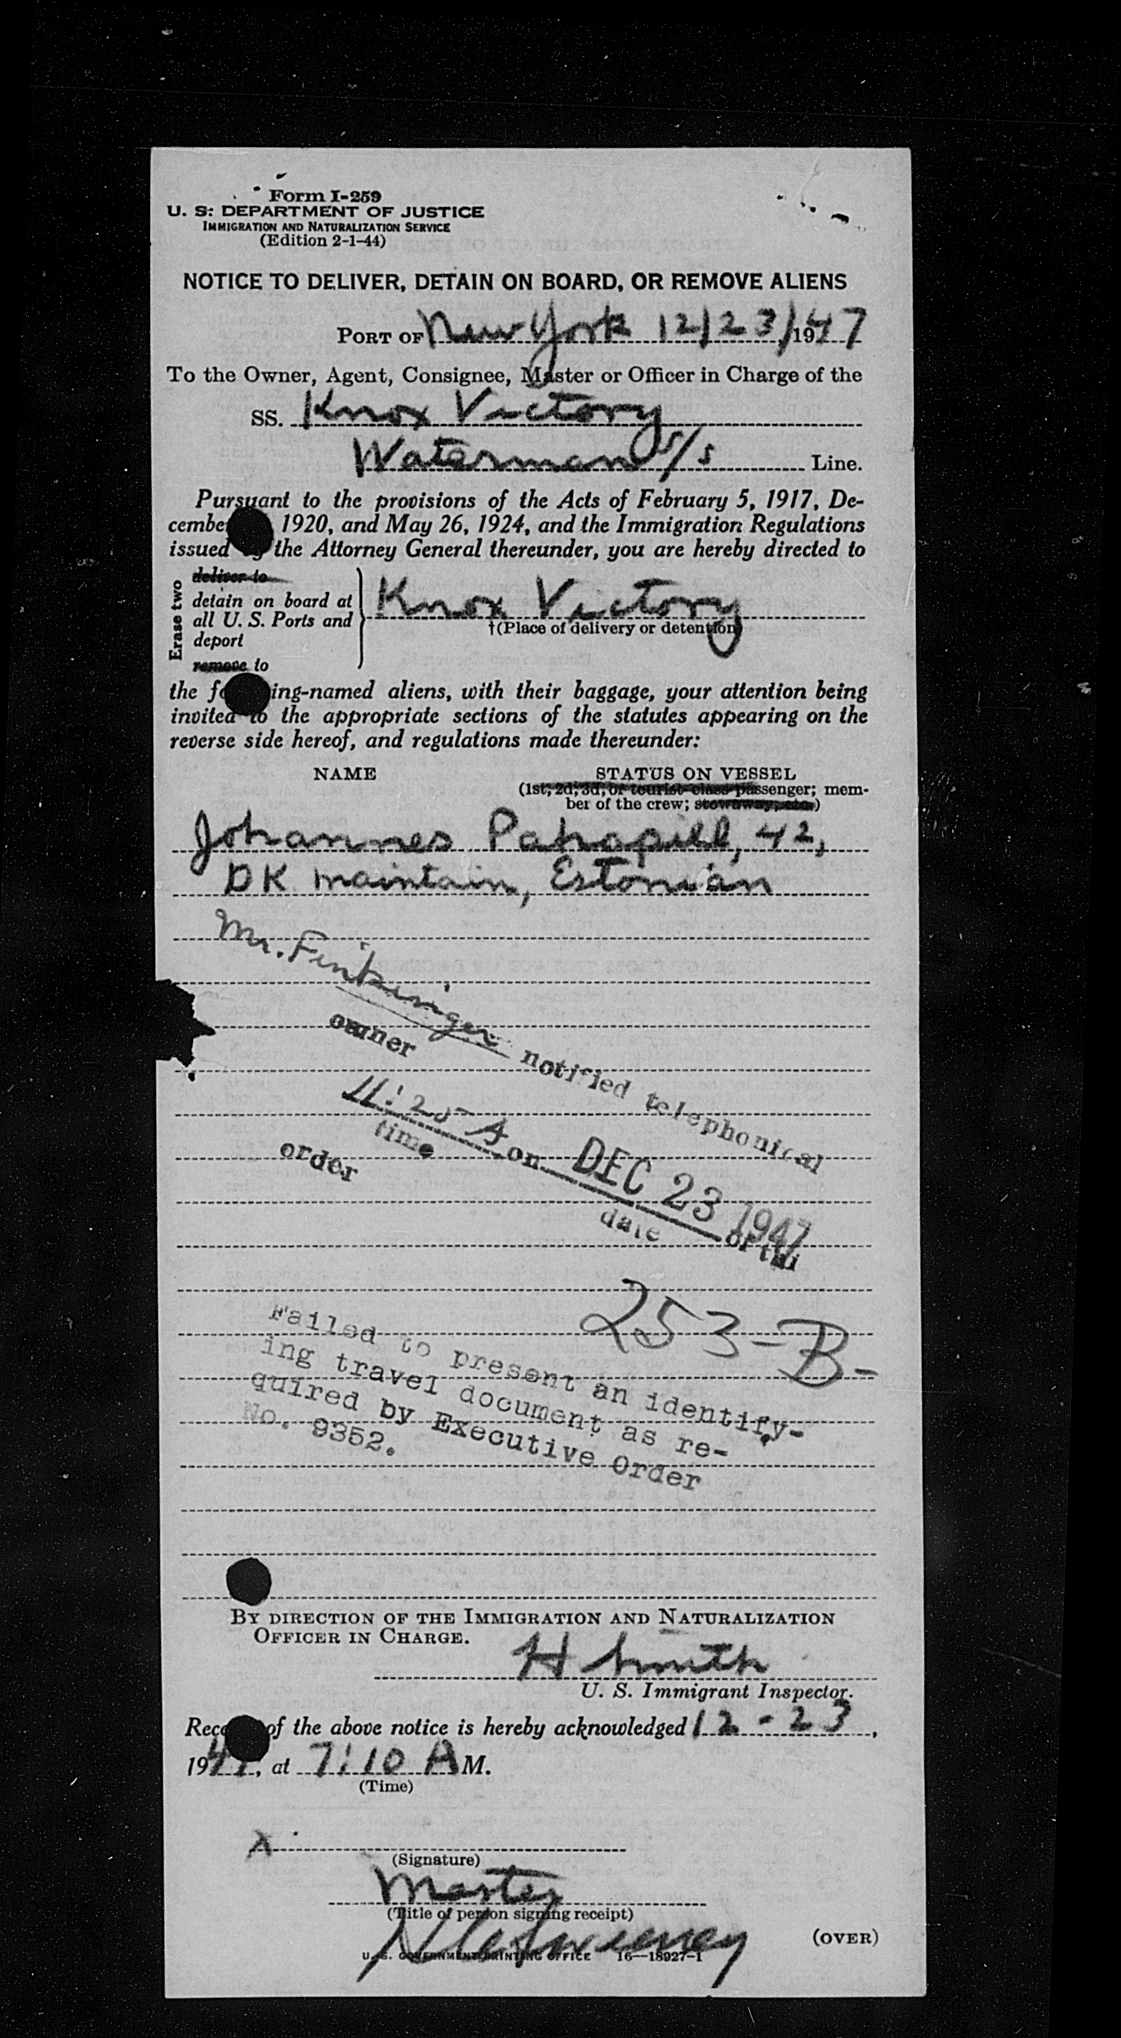 Form I-259
U. S. DEPARTMENT OF JUSTICE
IMMIGRATION AND NATURALIZATION SERVICE
(Edition 2-1-44)
NOTICE TO DELIVER, DETAIN ON BOARD, OR REMOVE ALIENS
PORT OF New York 12/23/1947
To the Owner, Agent, Consignee, Master or Officer in Charge of the
SS. Knox Victory
Waterman s/s Line.
Pursuant to the provisions of the Acts of February 5, 1917, De-
cember 1920, and May 26, 1924, and the Immigration Regulations
issued by the Attorney General thereunder, you are hereby directed to
Erase two
deliver to
detain on board at
all U. S. Ports and
deport
remove to
Knox Victory
†(Place of delivery or detention)
the following-named aliens, with their baggage, your attention being
invited to the appropriate sections of the statutes appearing on the
reverse side hereof, and regulations made thereunder:
NAME STATUS ON VESSEL
(1st, 2d, 3d, or tourist class passenger; mem-
ber of the crew; stowaway, etc.)
Johannes Pahapill, 42,
DK maintain, Estonian
Mr.
owner notified telephonical
11:25 A on DEC 23 1947
time date of thi
order
253-B-
Failed to present an identify-
ing travel document as re-
quired by Executive Order
No. 9352.
BY DIRECTION OF THE IMMIGRATION AND NATURALIZATION
OFFICER IN CHARGE.
H Smith
U. S. Immigrant Inspector.
Receipt of the above notice is hereby acknowledged 12-23,
1947, at 7:10 A M.
(Time)
x
(Signature)
Master
(Title of person signing receipt)
(OVER)
U. S. GOVERNMENT PRINTING OFFICE 16—18927-1